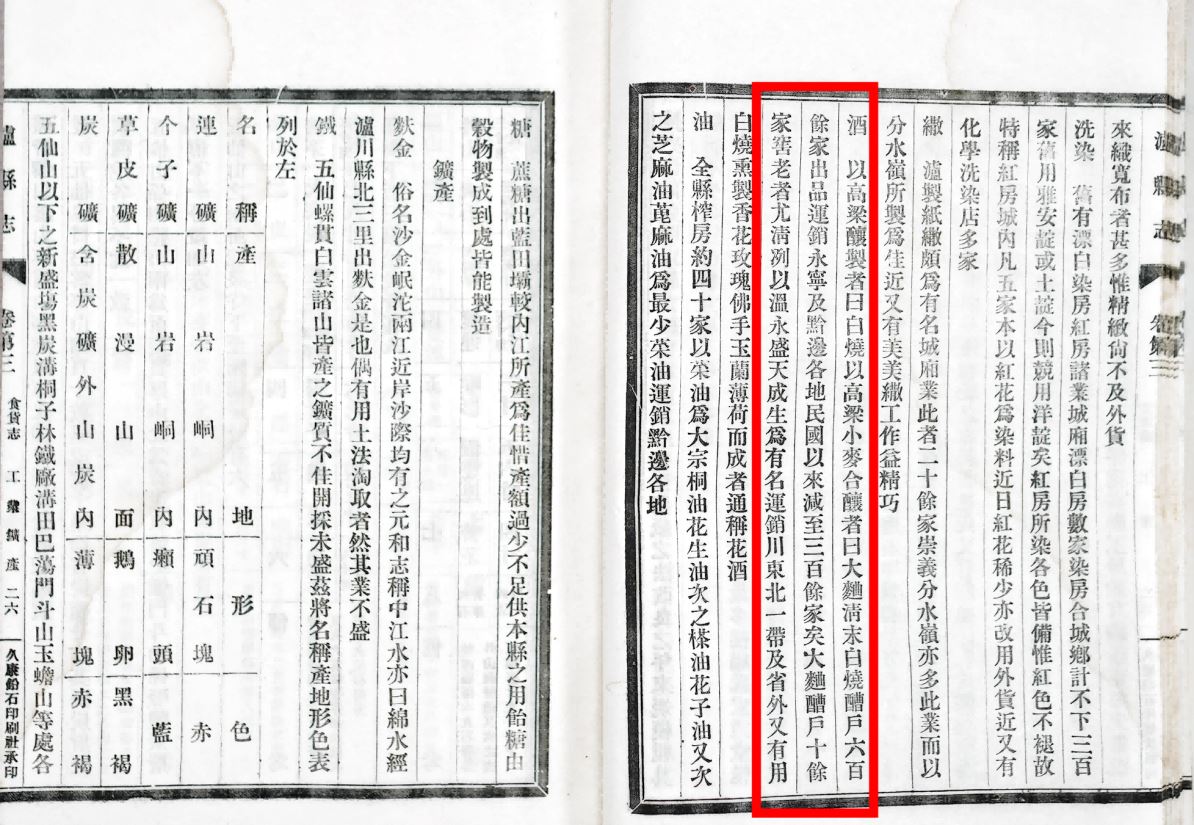 來織寬布者甚多惟精緻尙不及外貨
洗染　舊有漂白染房紅房諸業城廂漂白房數家染房合城鄉計不下三百
家舊用雅安靛或土靛今則競用洋靛矣紅房所染各色皆備惟紅色不褪故
特稱紅房城內凡五家本以紅花爲染料近日紅花稀少亦改用外貨近又有
化學洗染店多家
繖　瀘製紙繖頗爲有名城廂業此者二十餘家崇義分水嶺亦多此業而以
分水嶺所製爲佳近又有美美繖工作益精巧
酒　以高粱釀製者曰白燒以高粱小麥合釀者曰大麯淸末白燒醩戶六百
餘家出品運銷永寧及黔邊各地民國以來減至三百餘家矣大麯醩戶十餘
家窖老者尤淸冽以溫永盛天成生爲有名運銷川東北一帶及省外又有用
白燒熏製香花玫瑰佛手玉蘭薄荷而成者通稱花酒
油　全縣榨房約四十家以菜油爲大宗桐油花生油次之榛油花子油又次
之芝麻油萞麻油爲最少菜油運銷黔邊各地
糖　蔗糖出藍田壩較內江所產爲佳惜產額過少不足供本縣之用飴糖由
穀物製成到處皆能製造
鑛產
麩金　俗名沙金岷沱兩江近岸沙際均有之元和志稱中江水亦曰綿水經
瀘川縣北三里出麩金是也偶有用土法淘取者然其業不盛
鐵　五仙螺貫白雲諸山皆產之鑛質不佳開採未盛茲將名稱產地形色表
列於左
名稱　產地　形色
連子礦　山岩峒內　頑石塊赤
个子礦　山岩峒內　癩頭藍
草皮礦　散漫山面　鵝卵黑褐
炭礦　含炭礦外山炭內　薄塊赤褐
五仙山以下之新盛塲黑炭溝桐子林鐵廠溝田巴蕩門斗山玉蟾山等處各
瀘縣志　卷第三　食貨志　工業　鑛產　二六　久康鉛石印刷社承印